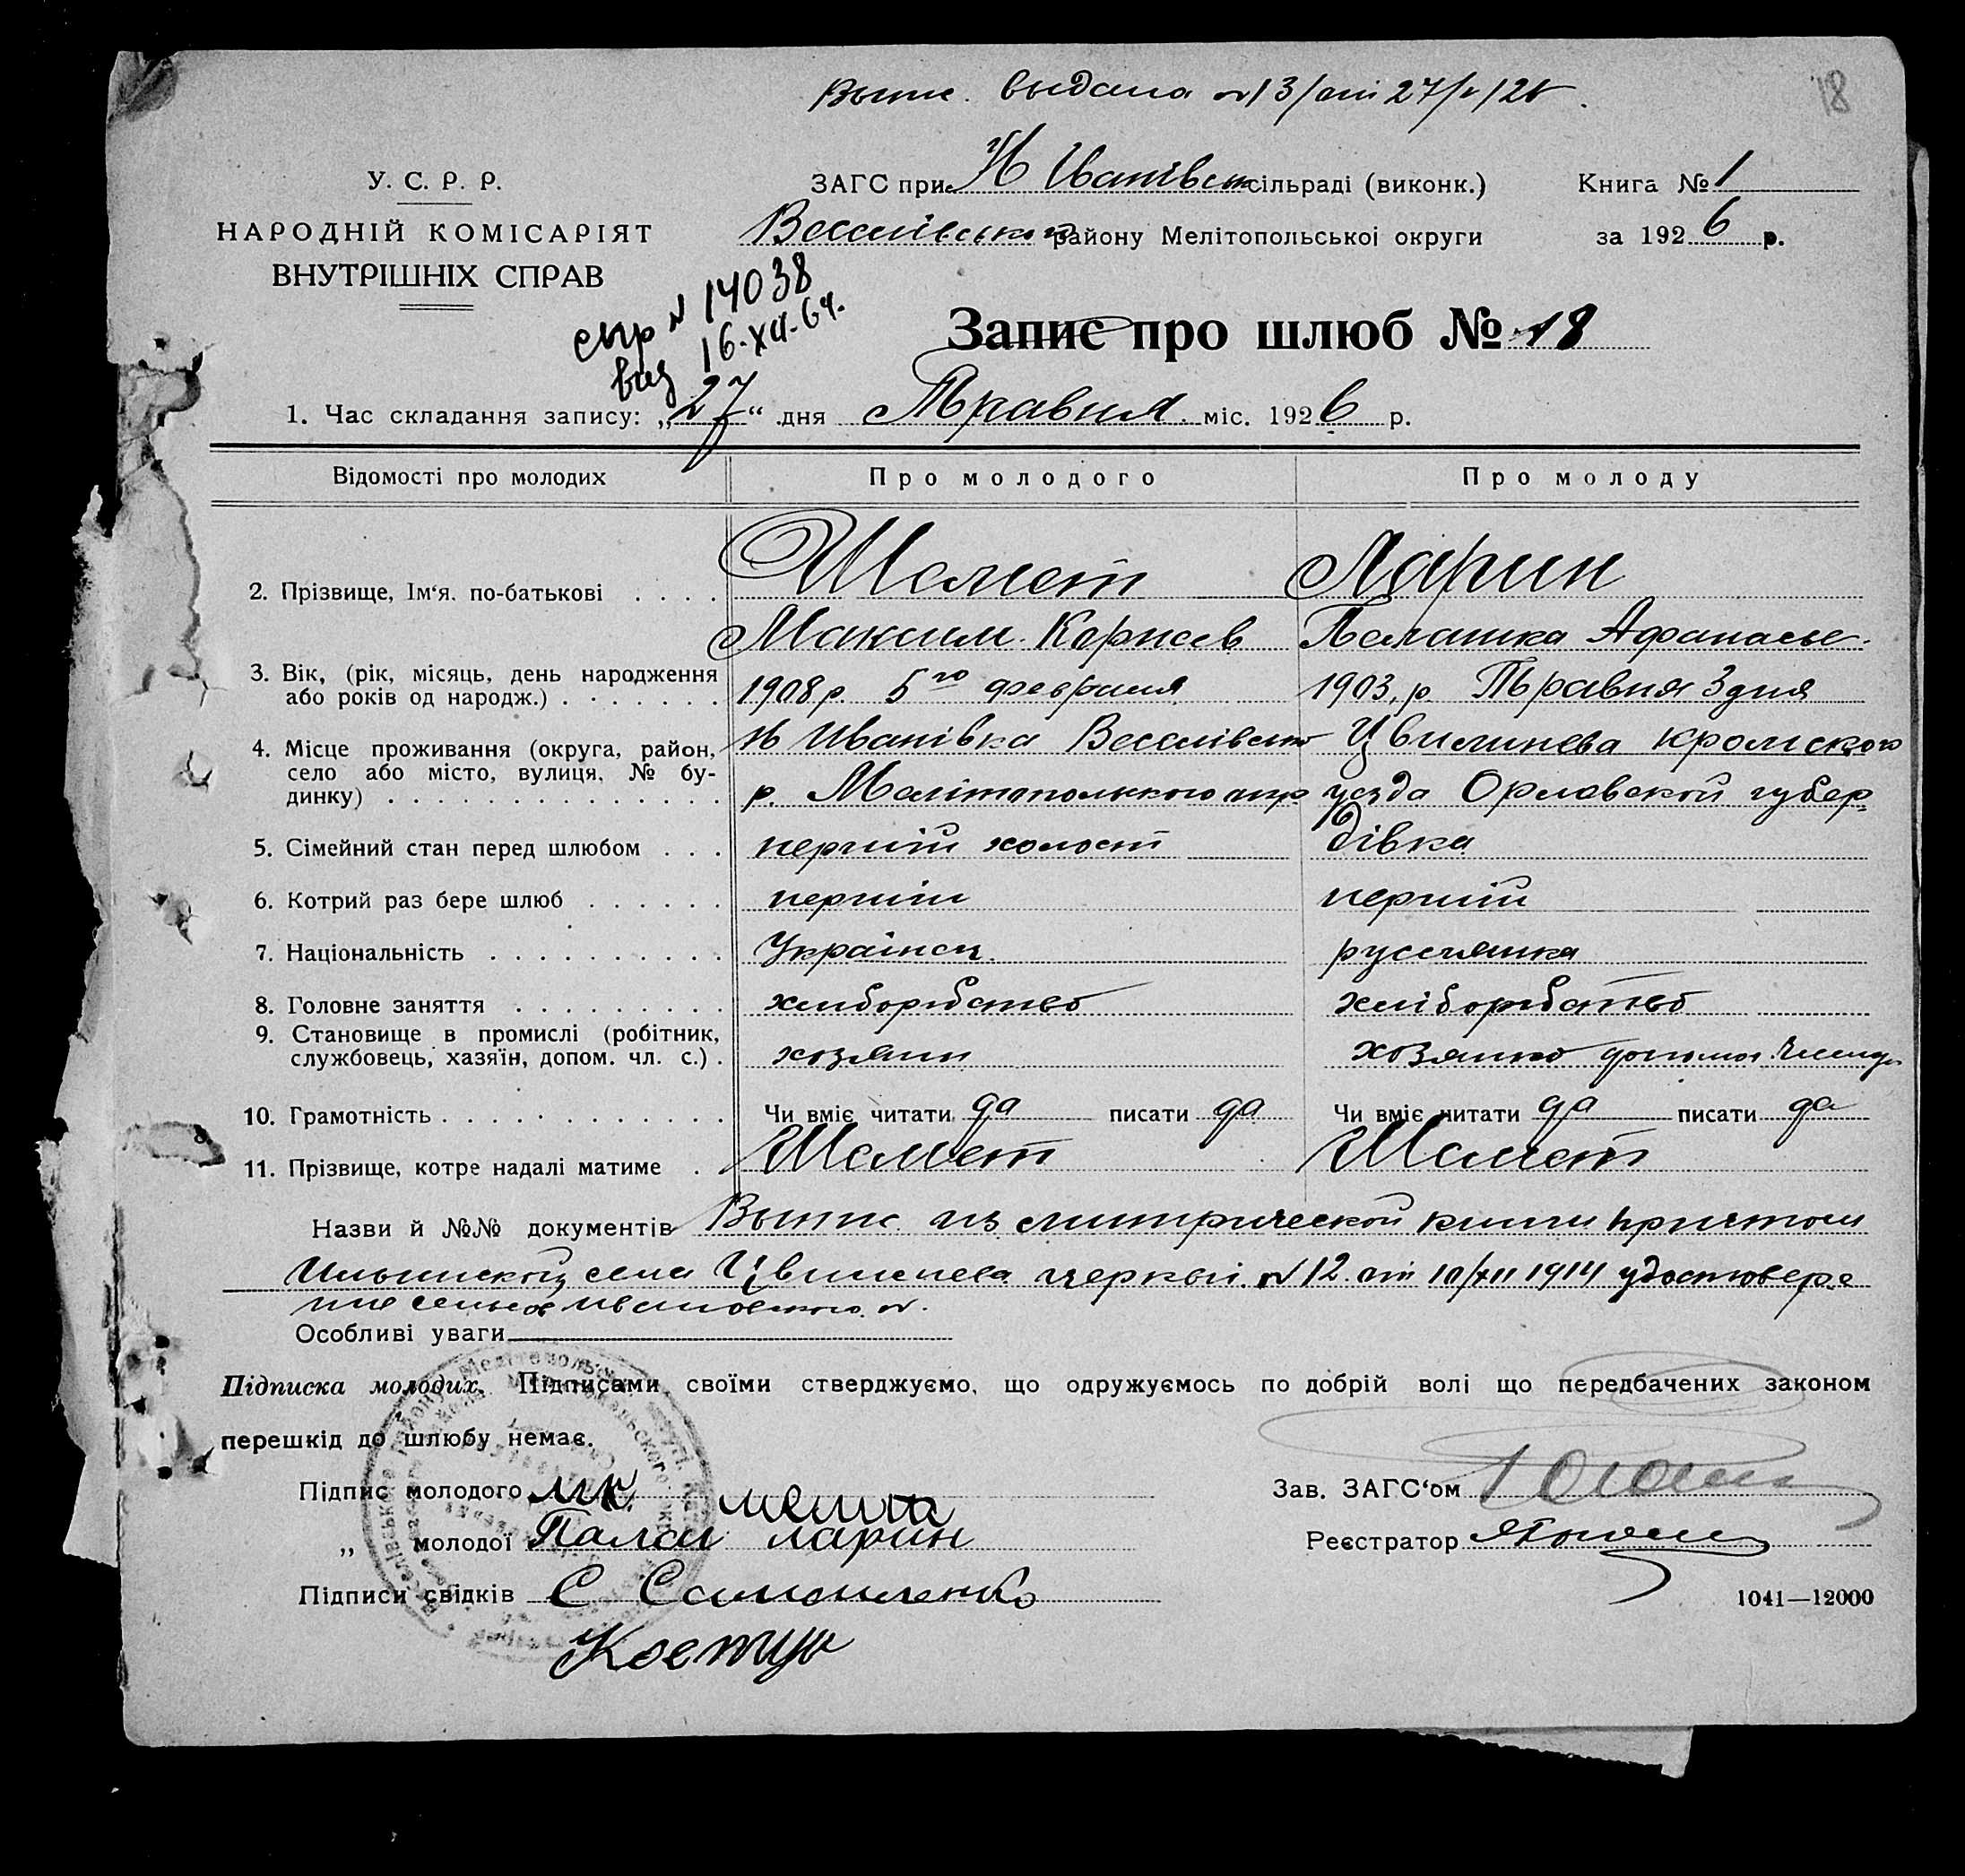 Выпис. выдана №13/от 27/V/26.
18
У. С. Р. Р.
НАРОДНІЙ КОМІСАРІЯТ
ВНУТРІШНІХ СПРАВ
ЗАГС при Н Іванівськ сільраді (виконк.)
Книга № 1
Веселівського району Мелітопольської округи
за 1926 р.
№ 14038
16.XII.64.
Запис про шлюб № 18
1. Час складання запису: „27“ дня Травня міс. 1926 р.
Відомості про молодих
Про молодого
Про молоду
2. Прізвище, Ім‘я. по-батькові . . . .
Шемет
Ларин
Максим Корнеев
Пелашка Афанасье.
3. Вік, (рік, місяць, день народження
або років од народж.) . . . . . . .
1908 р. 5го февраля
1903, р. Травня 3 дня
4. Місце проживання (округа, район,
село або місто, вулиця, № бу-
динку) . . . . . . . . . . . . . .
Н Иванівка Веселівськ
р. Мелітопольского окр
Цвиленева кромского
уезда Орловской губер
5. Сімейний стан перед шлюбом . . .
перший холост
дівка
6. Котрий раз бере шлюб . . . . . .
перший
перший
7. Національність . . . . . . . . . .
Українец.
русчянка
8. Головне заняття . . . . . . . . .
хлиборобство
хліборобство
9. Становище в промислі (робітник,
службовець, хазяїн, допом. чл. с.) .
хозяин
хозяйка
10. Грамотність . . . . . . . . . . . . .
Чи вміє читати да писати да
Чи вміє читати да писати да
11. Прізвище, котре надалі матиме .
Шемет
Шемет
Назви й №№ документів Выпис из митрической книги причтом
Ильинской села Цвиленева церквы. №12 от 10/XII 1914 удостовере
ние сельсов Ивановского №.
Особливі уваги
Підписка молодих. Підписами своїми стверджуємо, що одружуємось по добрій волі що передбачених законом
перешкід до шлюбу немає.
Підпис молодого МК
„ молодої Палаг ларин
Підписи свідків С Самойленко
Зав. ЗАГС‘ом
Реєстратор
1041—12000